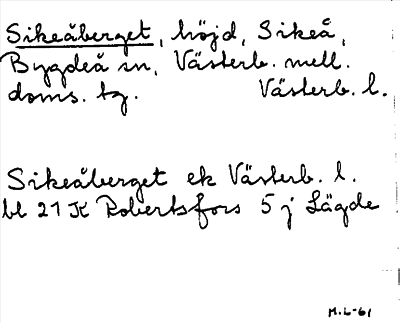 Sikeåberget, höjd, Sikeå,
Bygdeå sn, Västerb. mell.
doms. tg. Västerb. l.
Sikeåberget ek Västerb. l.
bl 21 K Robertsfors 5 j Lägde
M.L-61